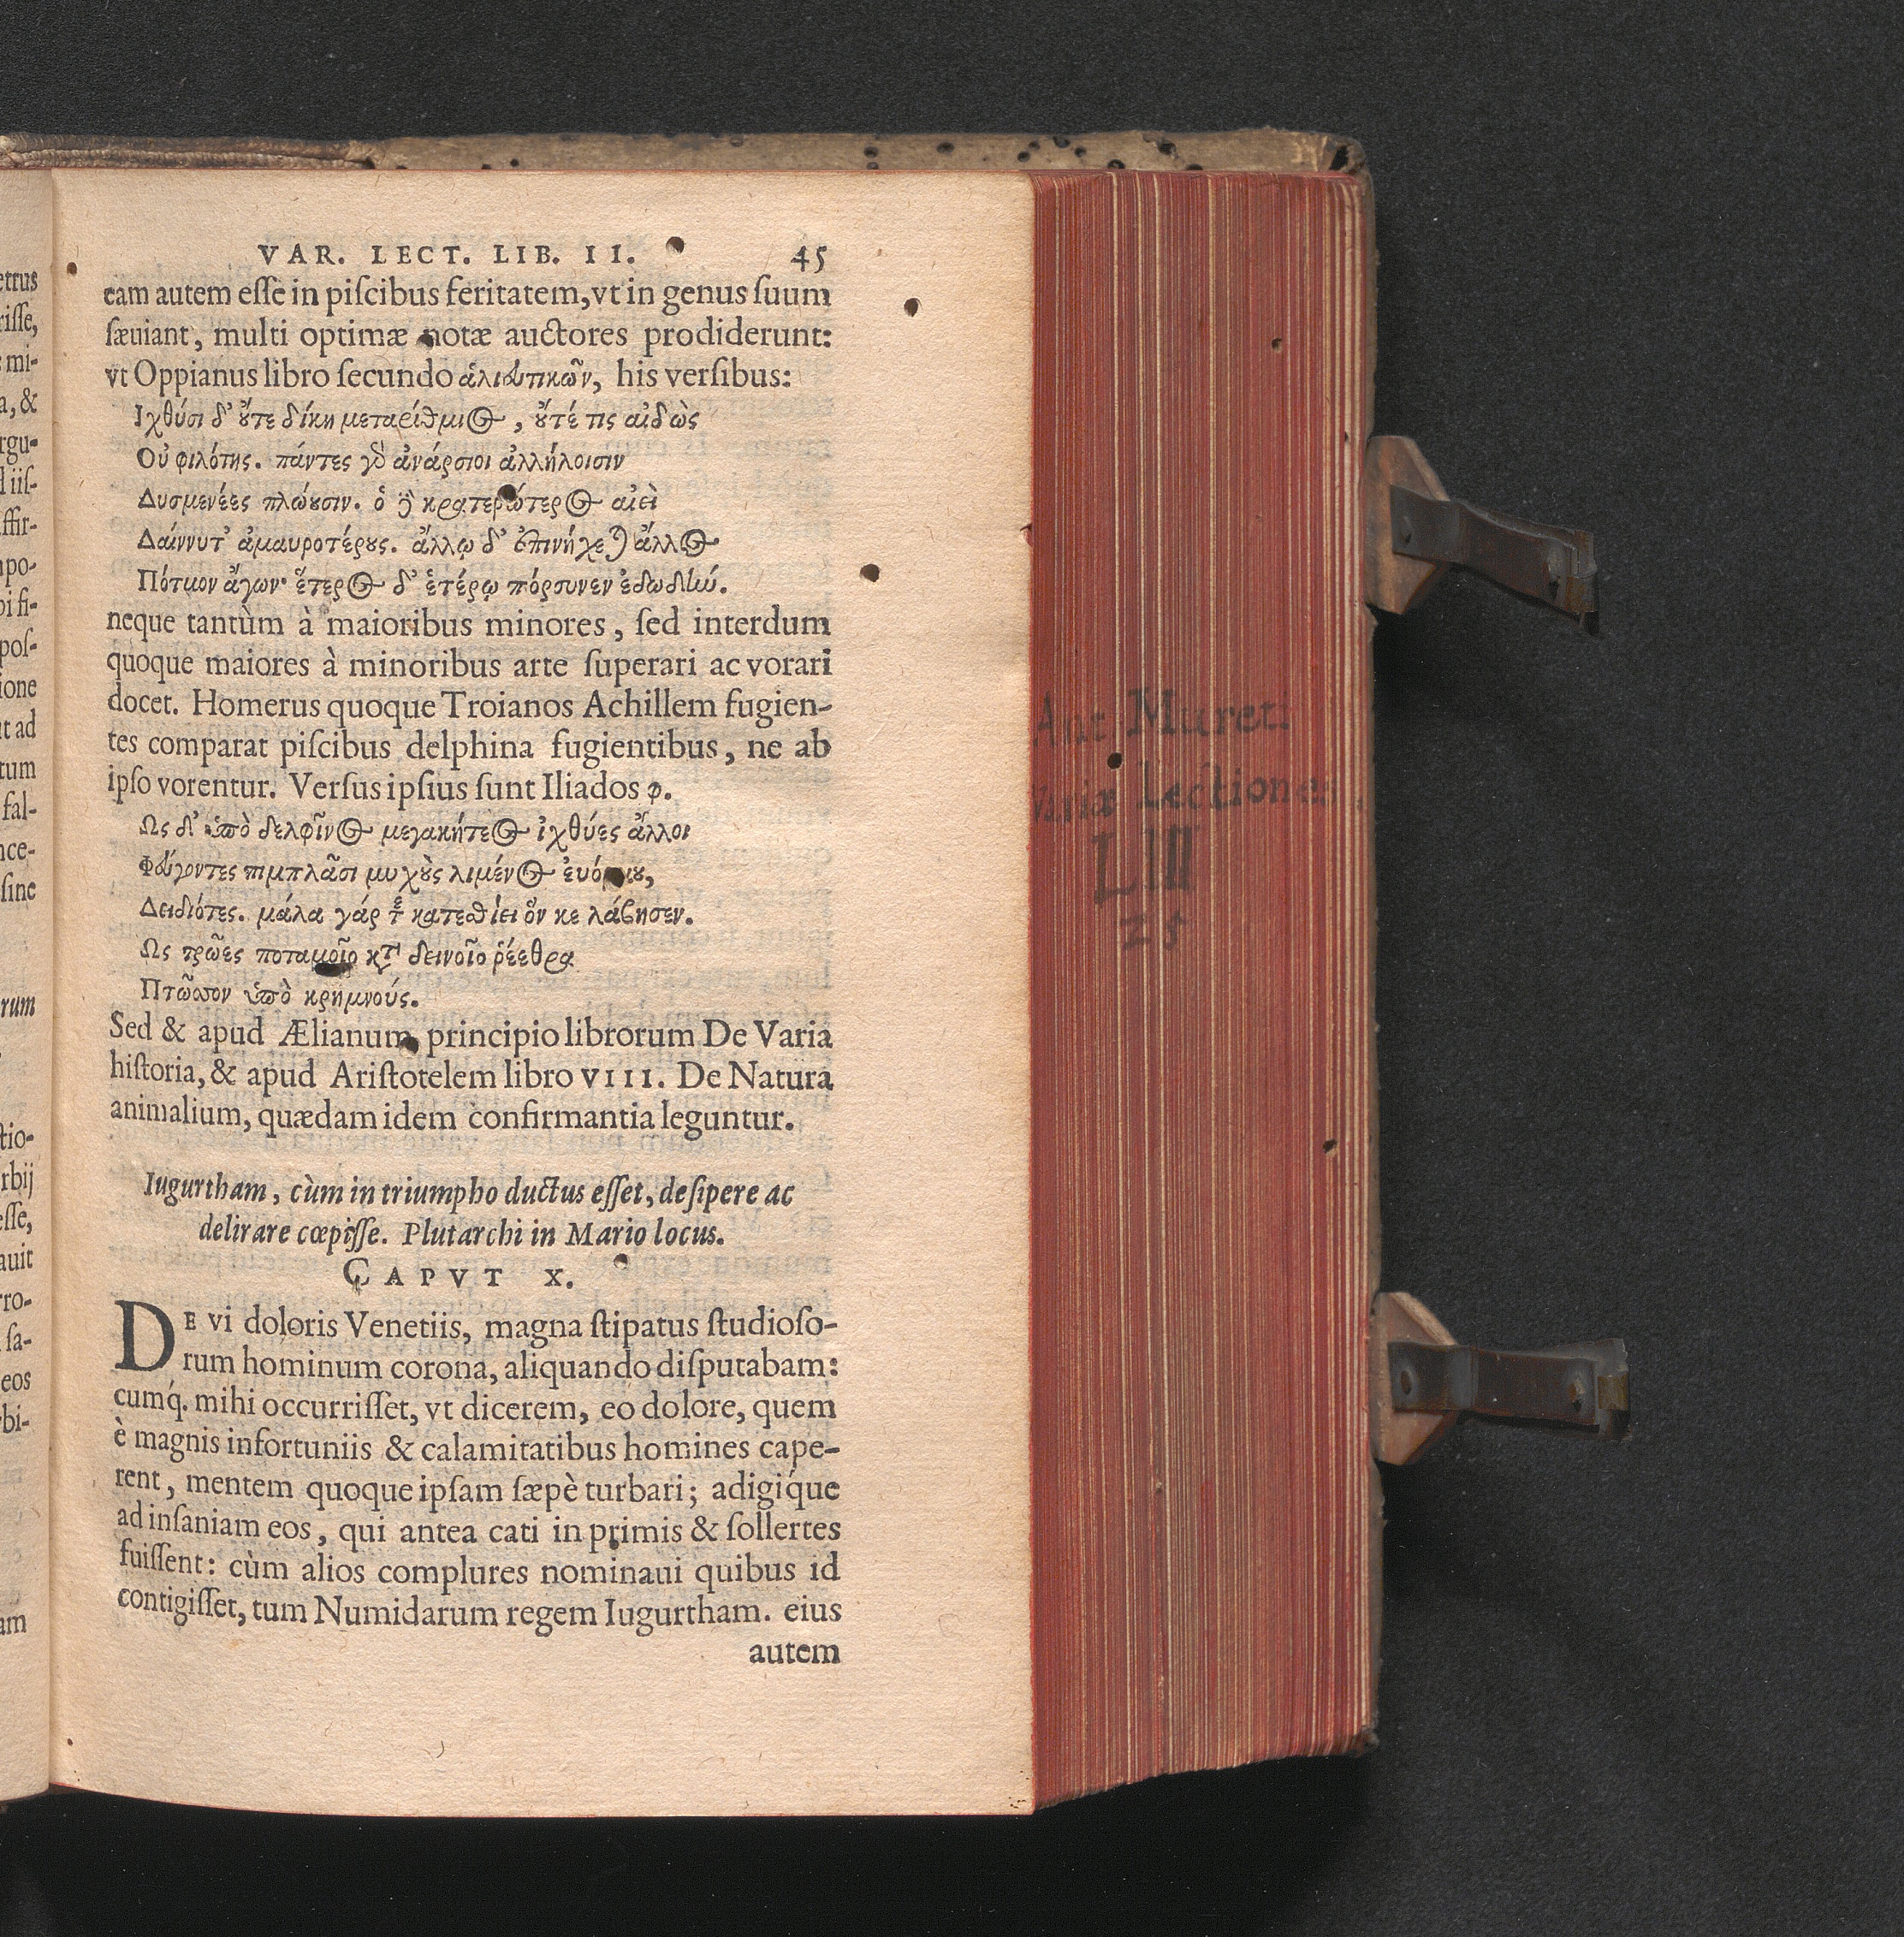 VAR. LECT. LIB. II. 45
eam autem eſſe in piſcibus feritatem, vt in genus ſuum
ſæuiant, multi optimæ notæ auctores prodiderunt:
vt Oppianus libro ſecundo ἁλιευτικῶν, his verſibus:
Ἰχθύσι δ' ὔτε δίκη μεταρίθμιος, ὔτέ τις αἰδὼς
Οὐ φιλότης. πάντες γὸ ἀνάρσιοι ἀλλήλοισιν
Δυσμενέες πλώουσιν. ὁ ϳ κρατερώτερος αἰεὶ
Δαίννυτ' ἀμαυροτέρους. ἄλλῳ δ' ἐπινήχεται ἄλλος
Πότμον ἄγων· ἕτερος δ' ἑτέρῳ πόρσυνεν ἐδωδήν.
neque tantùm à maioribus minores, ſed interdum
quoque maiores à minoribus arte ſuperari ac vorari
docet. Homerus quoque Troianos Achillem fugien-
tes comparat piſcibus delphina fugientibus, ne ab
ipſo vorentur. Verſus ipſius ſunt Iliados φ.
Ως δ' ὑπὸ δελφῖνος μεγακήτεος ἰχθύες ἄλλοι
Φεύγοντες πιμπλᾶσι μυχοὺς λιμένος ἐυόρμου,
Δειδιότες. μάλα γάρ τε κατεθίει ὅν κε λάβησεν.
Ως τρῶες ποταμοῖο κτ' δεινοῖο ῥέεθρα
Πτῶσσον ὑπὸ κρημνούς.
Sed & apud Ælianum principio librorum De Varia
hiſtoria, & apud Ariſtotelem libro VIII. De Natura
animalium, quædam idem confirmantia leguntur.
Iugurtham, cùm in triumpho ductus eſſet, deſipere ac
delirare cœpiſſe. Plutarchi in Mario locus.
CAPVT X.
DE vi doloris Venetiis, magna ſtipatus ſtudioſo-
rum hominum corona, aliquando diſputabam:
cumq́. mihi occurriſſet, vt dicerem, eo dolore, quem
è magnis infortuniis & calamitatibus homines cape-
rent, mentem quoque ipſam ſæpè turbari; adigíque
ad inſaniam eos, qui antea cati in primis & ſollertes
fuiſſent: cùm alios complures nominaui quibus id
contigiſſet, tum Numidarum regem Iugurtham. eius
autem
Ant Mureti
Variæ Lectiones
LIII
25